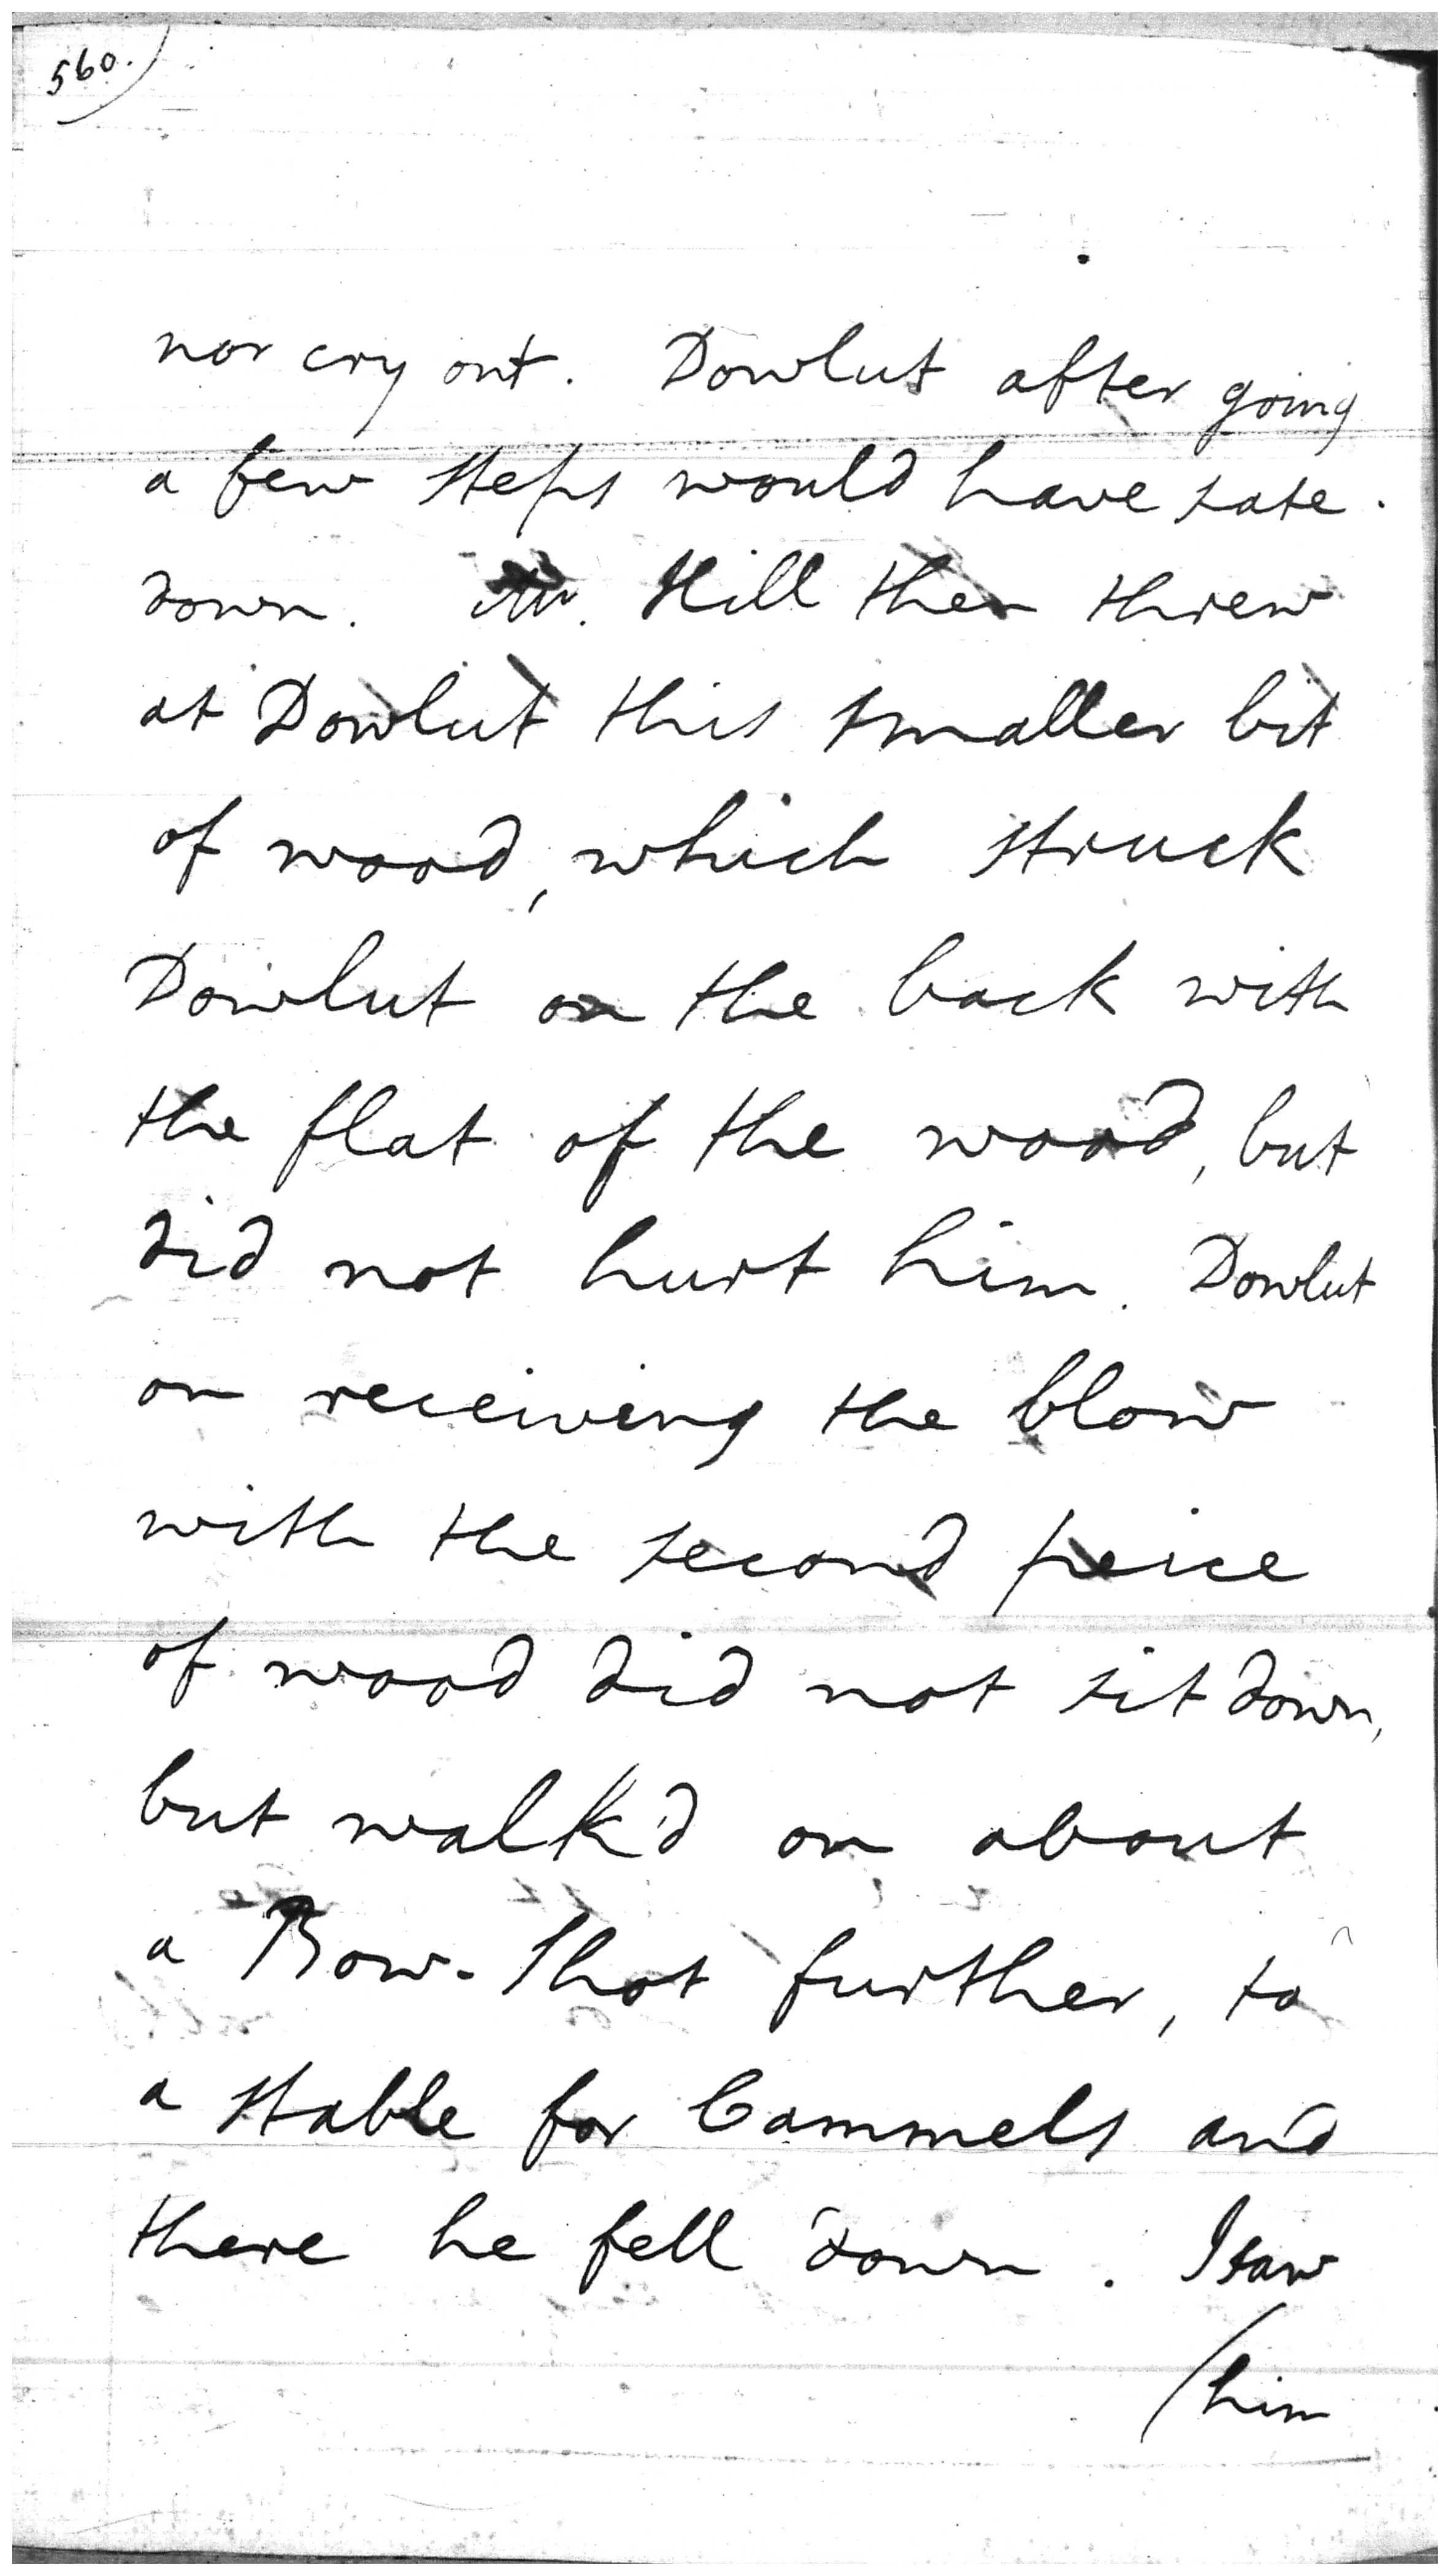 560.
nor cry out. Dowlut after going
a few steps would have sate
down. Mr. Hill then threw
at Dowlut this smaller bit
of wood, which struck
Dowlut on the back with
the flat of the wood, but
did not hurt him. Dowlut
on receiving the blow
with the second peice
of wood did not sit down,
but walk'd on about
a Bow-Shot further, to
a stable for Cammels and
there he fell down. I saw
(him